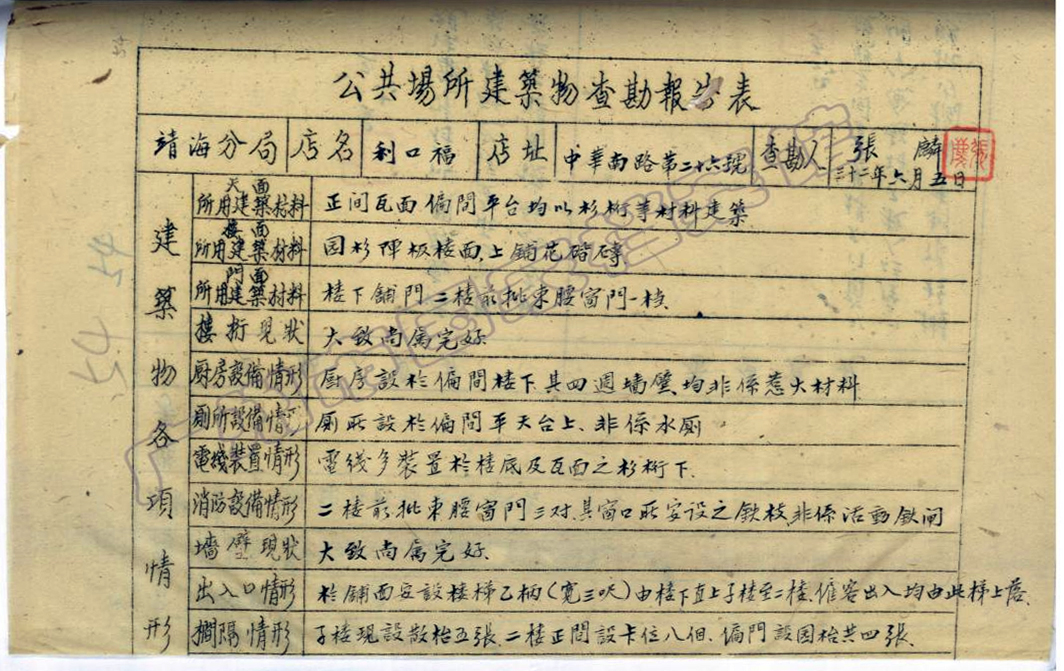 公共場所建築物查勘報告表
靖海分局 店名 利口福 店址 中華南路第二十六號 查勘人 張麟
三十二年六月五日
建築物各項情形
天面所用建築材料 正间瓦面偏間平台均以杉桁等材料建築
樓面所用建築材料 因杉陣板楼面,上鋪花階磚
門面所用建築材料 楼下舖門二楼前批東腰窗門一档
樓桁現狀 大致尚属完好
厨房設備情形 厨房設於偏間楼下其四週墙壁均非係惹火材料
厠所設備情形 厠所設於偏間平天台上、非係水厠
電线裝置情形 電线多装置於楼底及瓦面之杉桁下.
消防設備情形 二楼前批東腰窗門三对其窗口所安设之鉄枝非係活動鉄闸
墻壁現狀 大致尚属完好.
出入口情形 於舖面安設楼梯乙柄(寬三呎)由楼下直上子楼至二楼,僱客出入均由此梯上落.
擱隔情形 子楼現設散枱五張.二楼正間設卡位八個.偏門設圆枱共四張